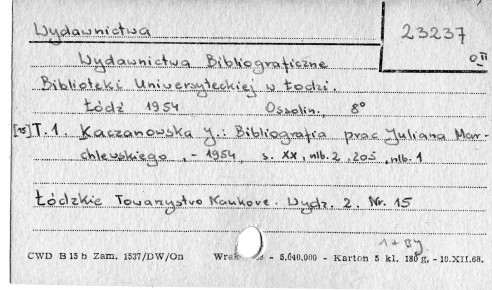 Wydawnictwa
23237
O II
Wydawnictwa Bibliograficzne
Biblioteki Uniwersyteckiej w Łodzi.
Łódź 1954 Ossolin. 8°
[15] T. 1. Kaczanowska J.: Bibliografia prac Juliana Mar-
chlewskiego, - 1954, s. XX, nlb. 2, 205, nlb. 1
Łódzkie Towarzystwo Naukowe. Wydz. 2. Nr. 15
1 + By
CWD B 15 b Zam. 1537/DW/On - 5.640.000 - Karton 5 kl. 180 g, - 10.XII.68.